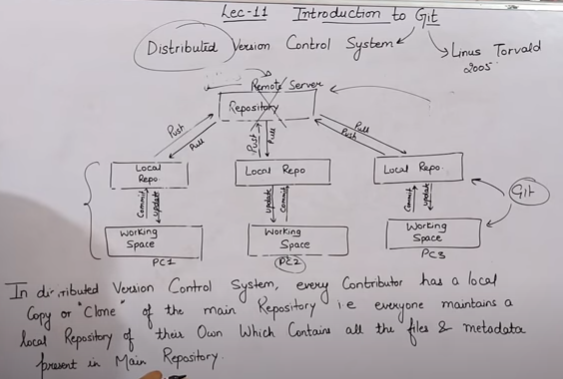 Lec-11 Introduction to Git
Distributed Version Control System
Linus Torvald
2005
Remote Server
Repository
Push
Pull
Push
Pull
Pull
Push
Local
Repo.
Local Repo
Local Repo.
Commit
update
update
Commit
Commit
update
Git
Working
Space
Working
Space
Working
Space
PC1
PC2
PC3
In distributed Version Control System, every Contributor has a local
Copy or "Clone" of the main Repository i.e everyone maintains a
local Repository of their Own Which Contains all the files & metadata
present in Main Repository.